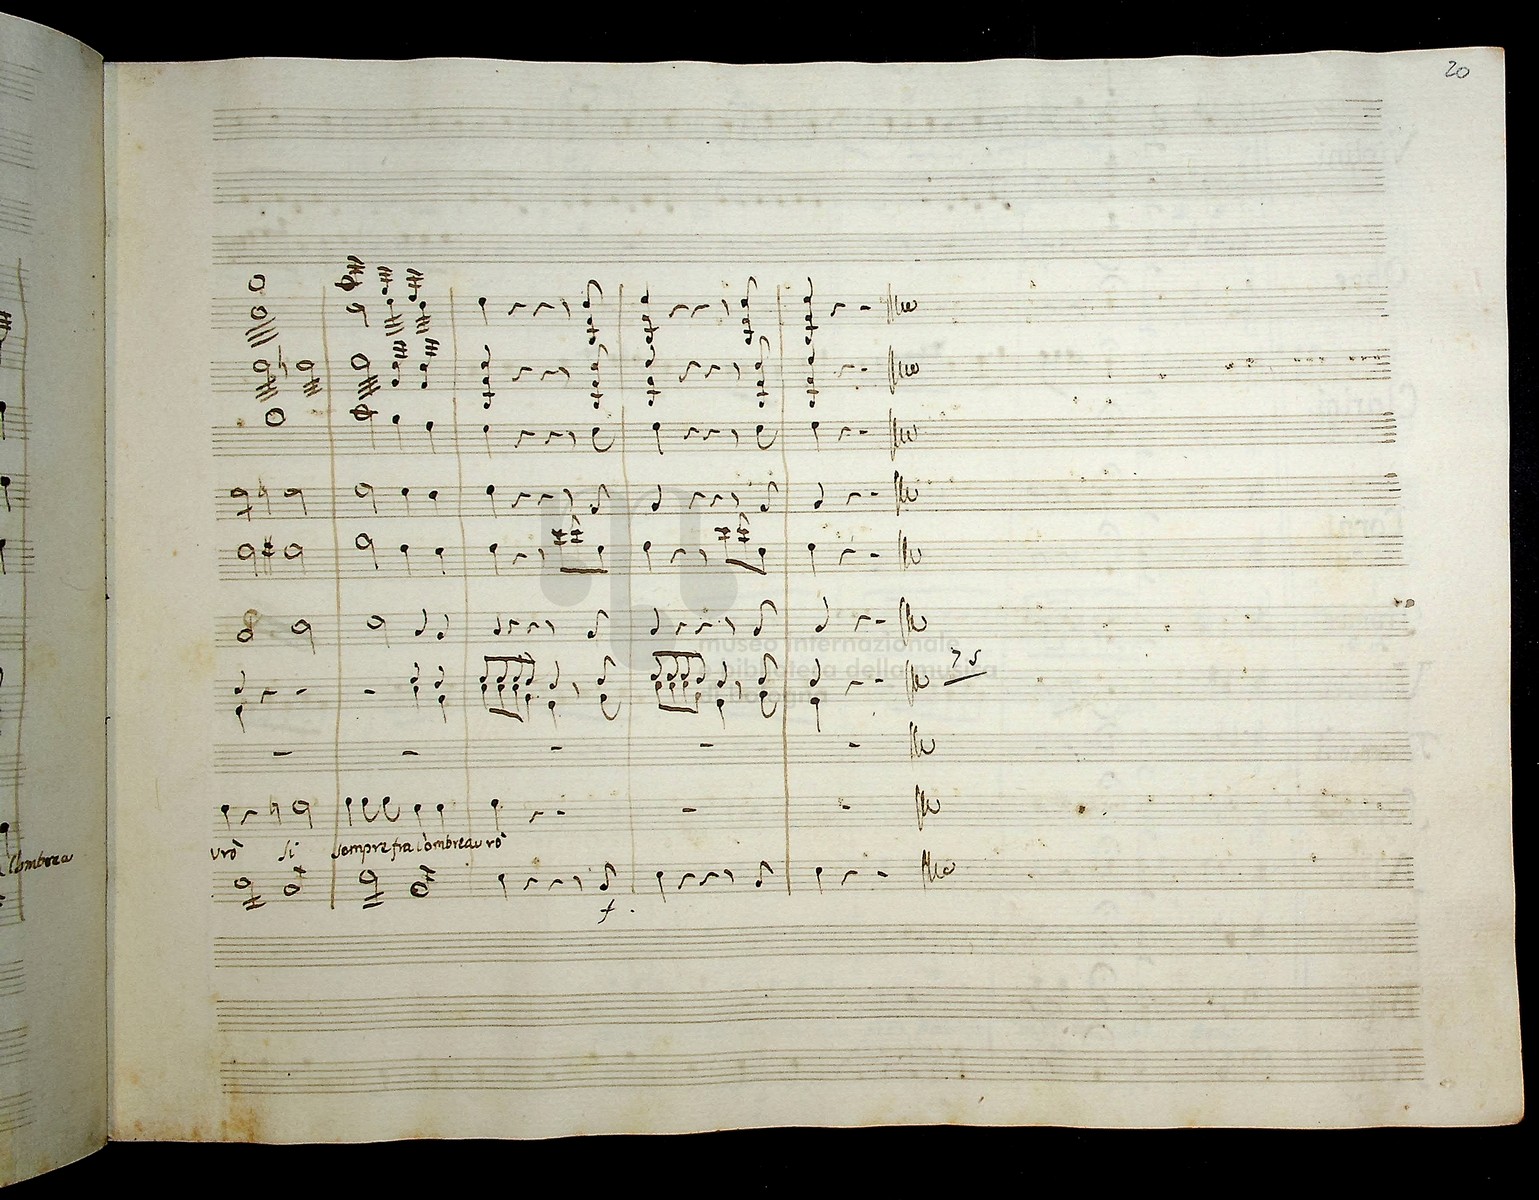 20
museo internazionale
e biblioteca della musica
di bologna
75
vrò si sempre fra l'ombre avrò
l'ombre a
f.